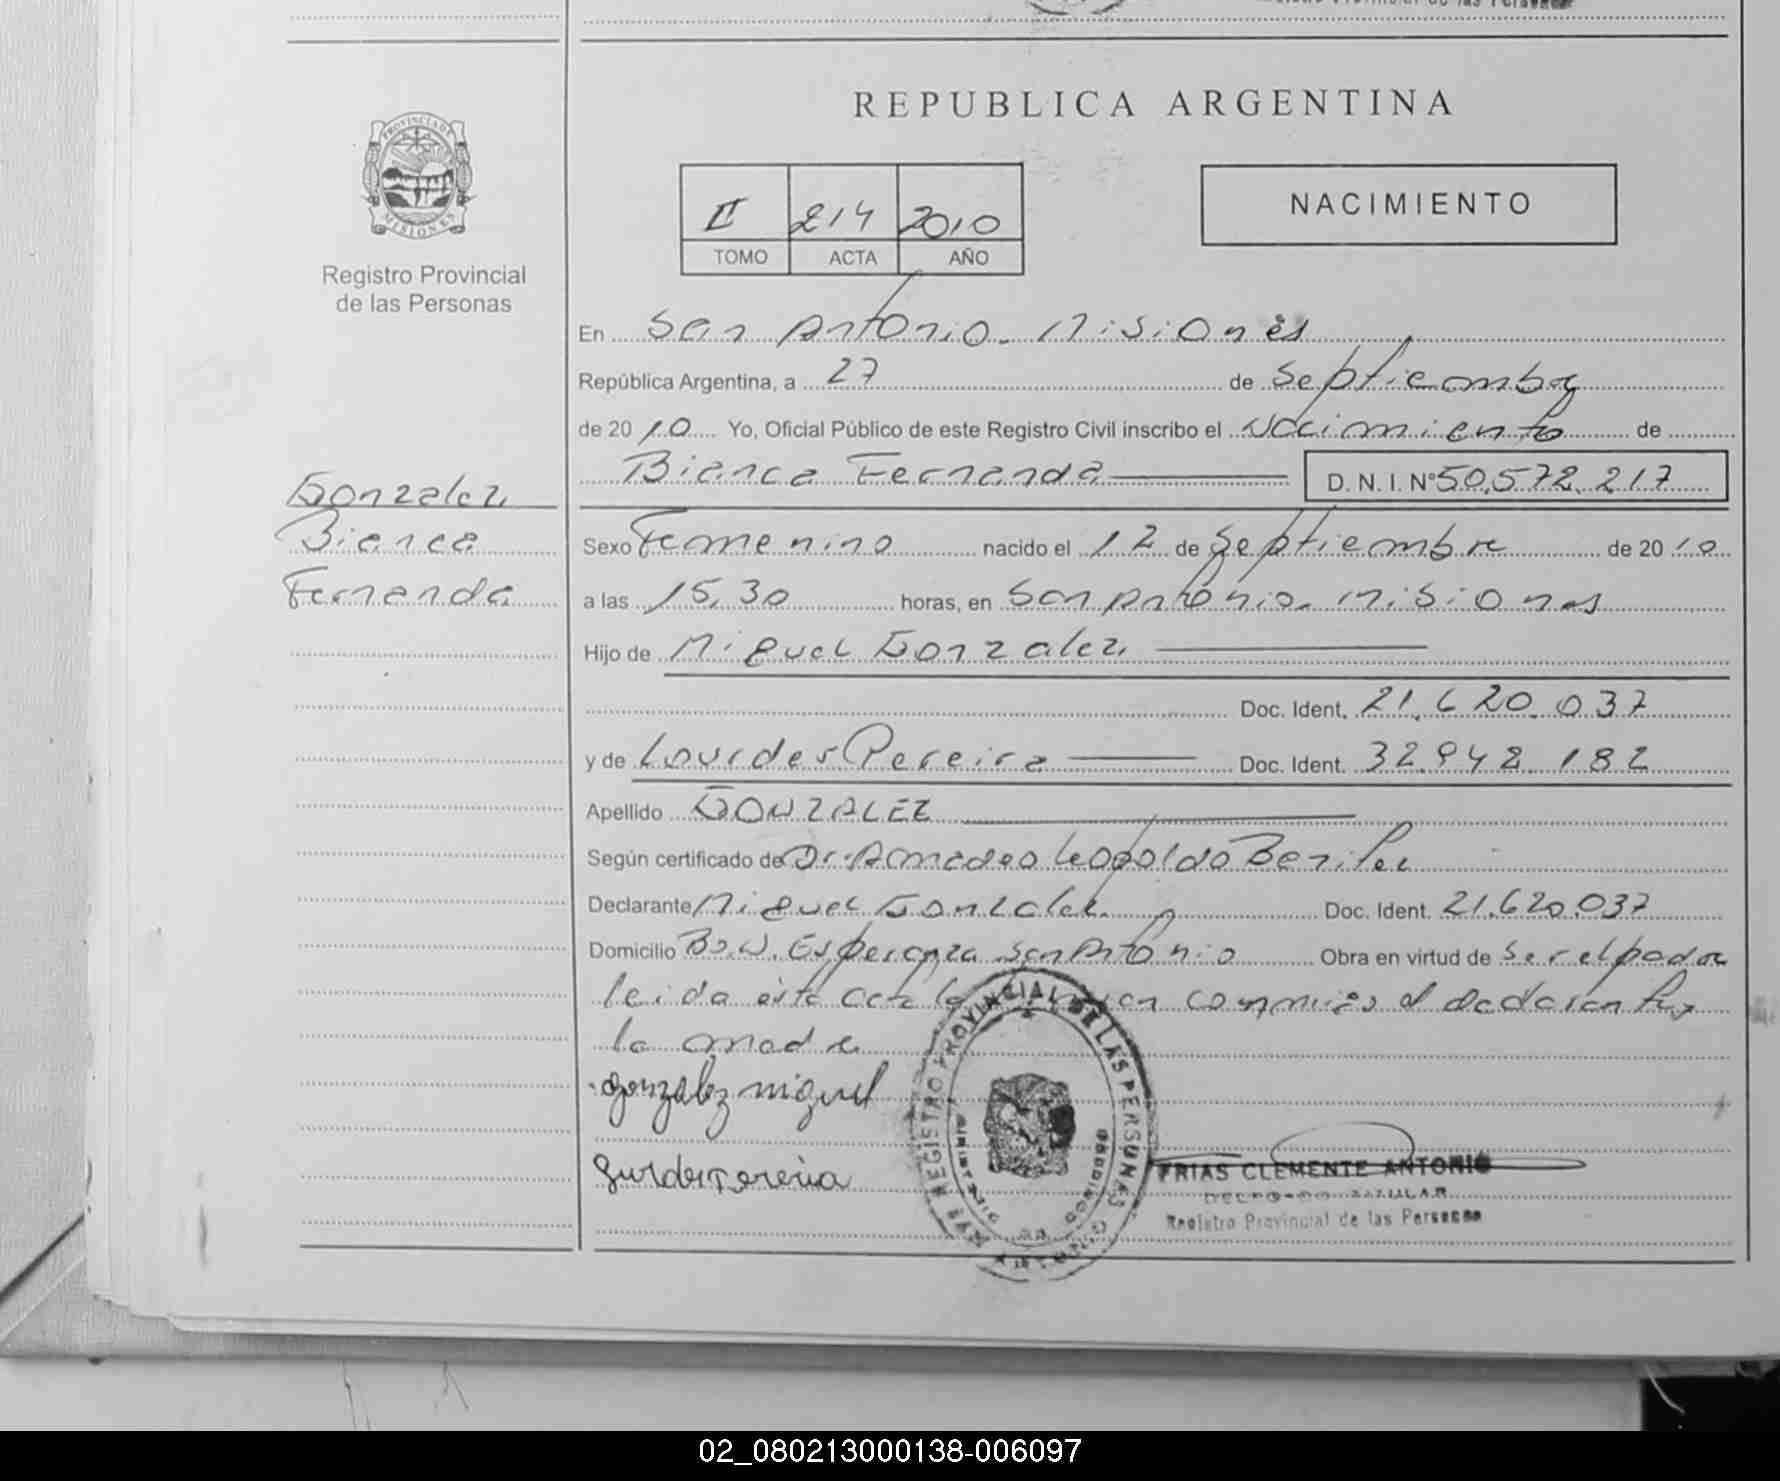 REPUBLICA ARGENTINA
PROVINCIA DE MISIONES
Registro Provincial
de las Personas
II 214 2010
TOMO ACTA AÑO
NACIMIENTO
En San Antonio. Misiones
República Argentina, a 27 de Septiembre
de 20 10 Yo, Oficial Público de este Registro Civil inscribo el Nacimiento de
Bianca Fernanda D. N. I. Nº 50.572.217
Gonzalez
Bianca
Fernanda
Sexo Femenino nacido el 12 de Septiembre de 20 10
a las 15,30 horas, en San Antonio. Misiones
Hijo de Miguel Gonzalez
Doc. Ident. 21.620.037
y de Lourdes Pereira Doc. Ident. 32.942.182
Apellido GONZALEZ
Según certificado de Dr. Amadeo Leopoldo Benitez
Declarante Miguel Gonzalez Doc. Ident. 21.620.037
Domicilio Bo. N. Esperanza San Antonio Obra en virtud de Ser el padre
leida esta acta la conmigo el declarante y
la madre
Gonzalez miguel
REGISTRO PROVINCIAL DE LAS PERSONAS
FRIAS CLEMENTE ANTONIO
Registro Provincial de las Personas
02_080213000138-006097